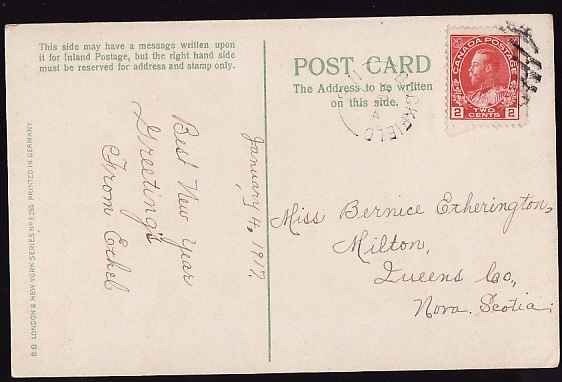 This side may have a message written upon
it for Inland Postage, but the right hand side
must be reserved for address and stamp only.
POST CARD
The Address to be written
on this side.
CANADA POSTAGE
2 TWO CENTS 2
January 4, 1917,
Best New Year
Greetings
From Ethel
Miss Bernice Etherington,
Milton,
Queens Co.,
Nova Scotia.
PRINTED IN GERMANY
LONDON & NEW YORK SERIES